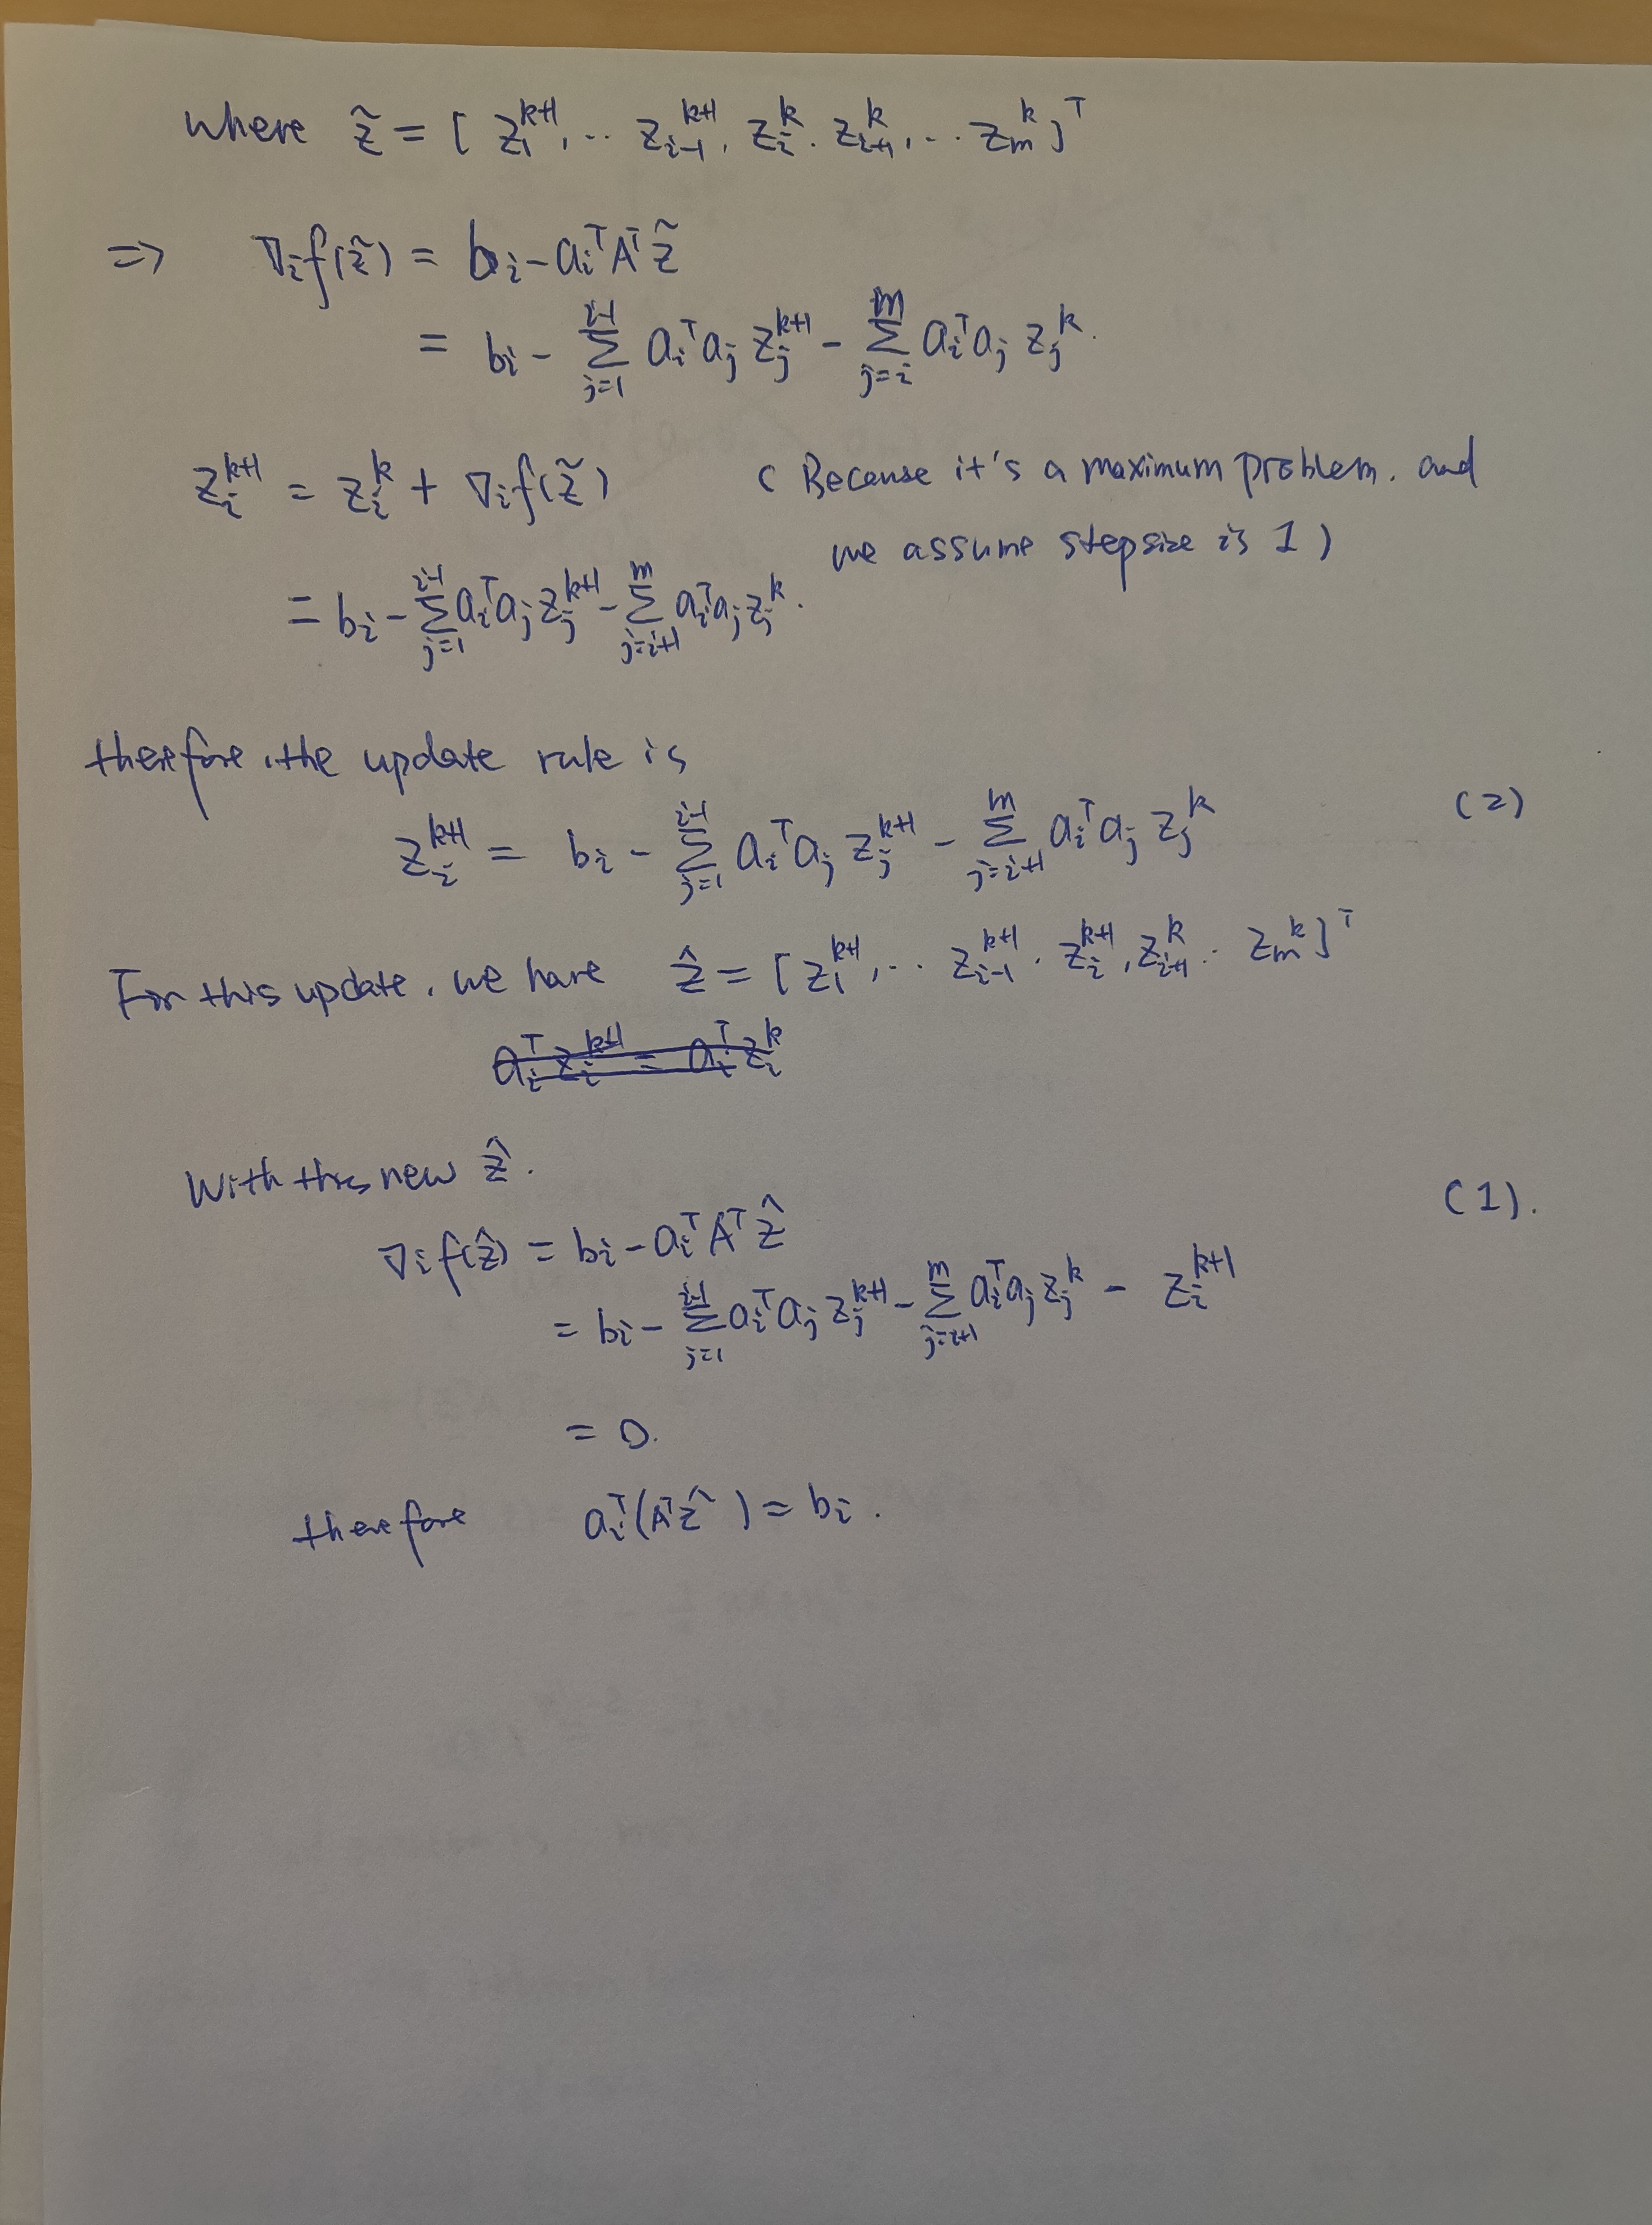 where z̃ = [ z₁^{k+1}, ·· z_{i-1}^{k+1}, z_i^k. z_{i+1}^k, ·· z_m^k ]^T
=> ∇_i f(z̃) = b_i - a_i^T A^T z̃
= b_i - Σ_{j=1}^{i-1} a_i^T a_j z_j^{k+1} - Σ_{j=i}^{m} a_i^T a_j z_j^k.
z_i^{k+1} = z_i^k + ∇_i f(z̃) ( Because it's a maximum problem. and
we assume stepsize is 1 )
= b_i - Σ_{j=1}^{i-1} a_i^T a_j z_j^{k+1} - Σ_{j=i+1}^{m} a_i^T a_j z_j^k.
therefore, the update rule is
z_i^{k+1} = b_i - Σ_{j=1}^{i-1} a_i^T a_j z_j^{k+1} - Σ_{j=i+1}^{m} a_i^T a_j z_j^k (2)
For this update, we have ẑ = [ z₁^{k+1}, ·· z_{i-1}^{k+1}. z_i^{k+1}, z_{i+1}^k ·· z_m^k ]^T
a_i^T z_i^{k+1} = a_i^T z_i^k
With this new ẑ.
(1).
∇_i f(ẑ) = b_i - a_i^T A^T ẑ
= b_i - Σ_{j=1}^{i-1} a_i^T a_j z_j^{k+1} - Σ_{j=i+1}^{m} a_i^T a_j z_j^k - z_i^{k+1}
= 0.
therefore a_i^T (A^T ẑ) = b_i.